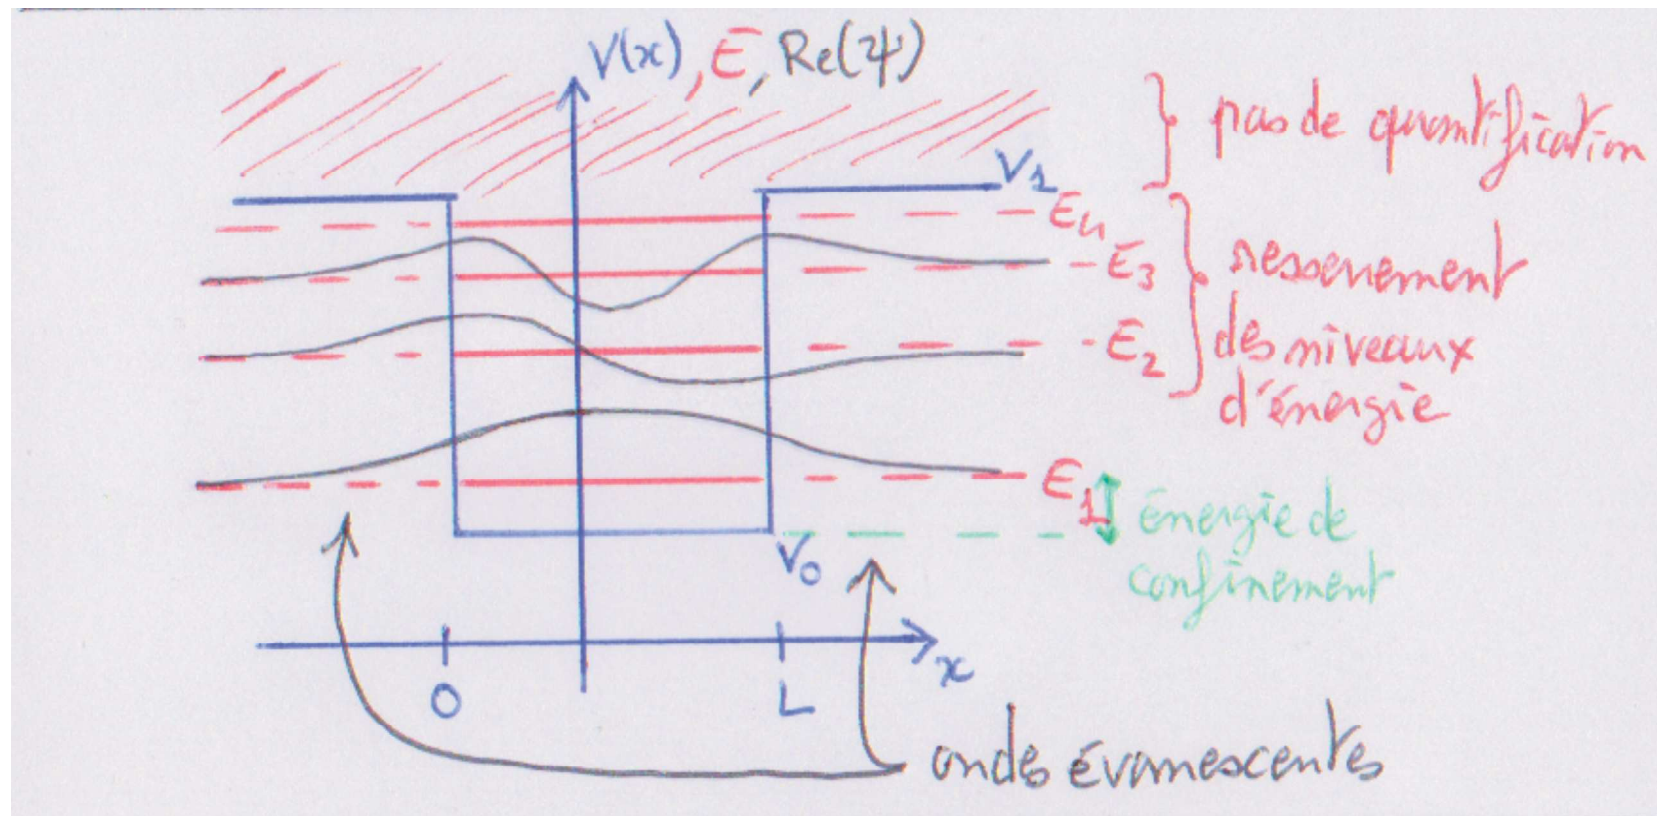 V(x), E, Re(Ψ)
pas de quantification
V1
E4
E3
resserrement
des niveaux
d'énergie
E2
E1
énergie de
confinement
V0
x
O
L
ondes évanescentes